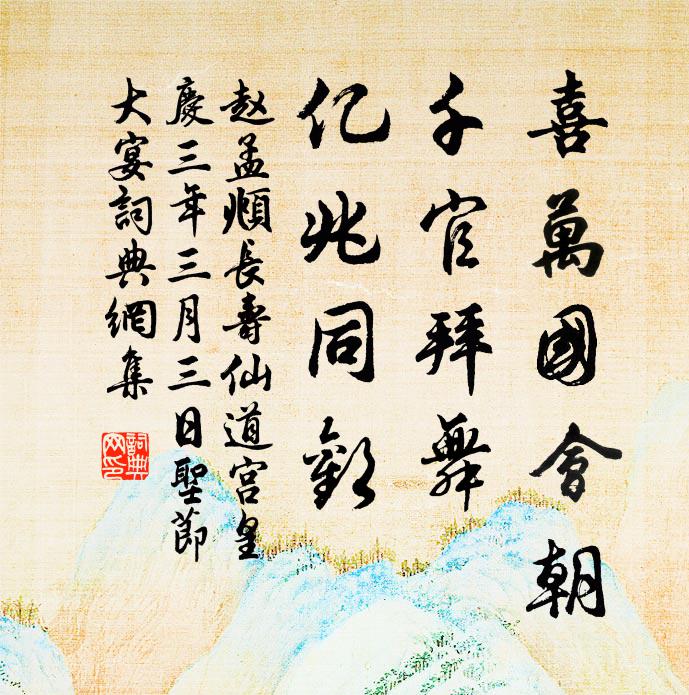 喜萬國會朝
千官拜舞
亿兆同歡
赵孟頫長壽仙道宫皇
慶三年三月三日聖節
大宴詞典網集
詞典網印